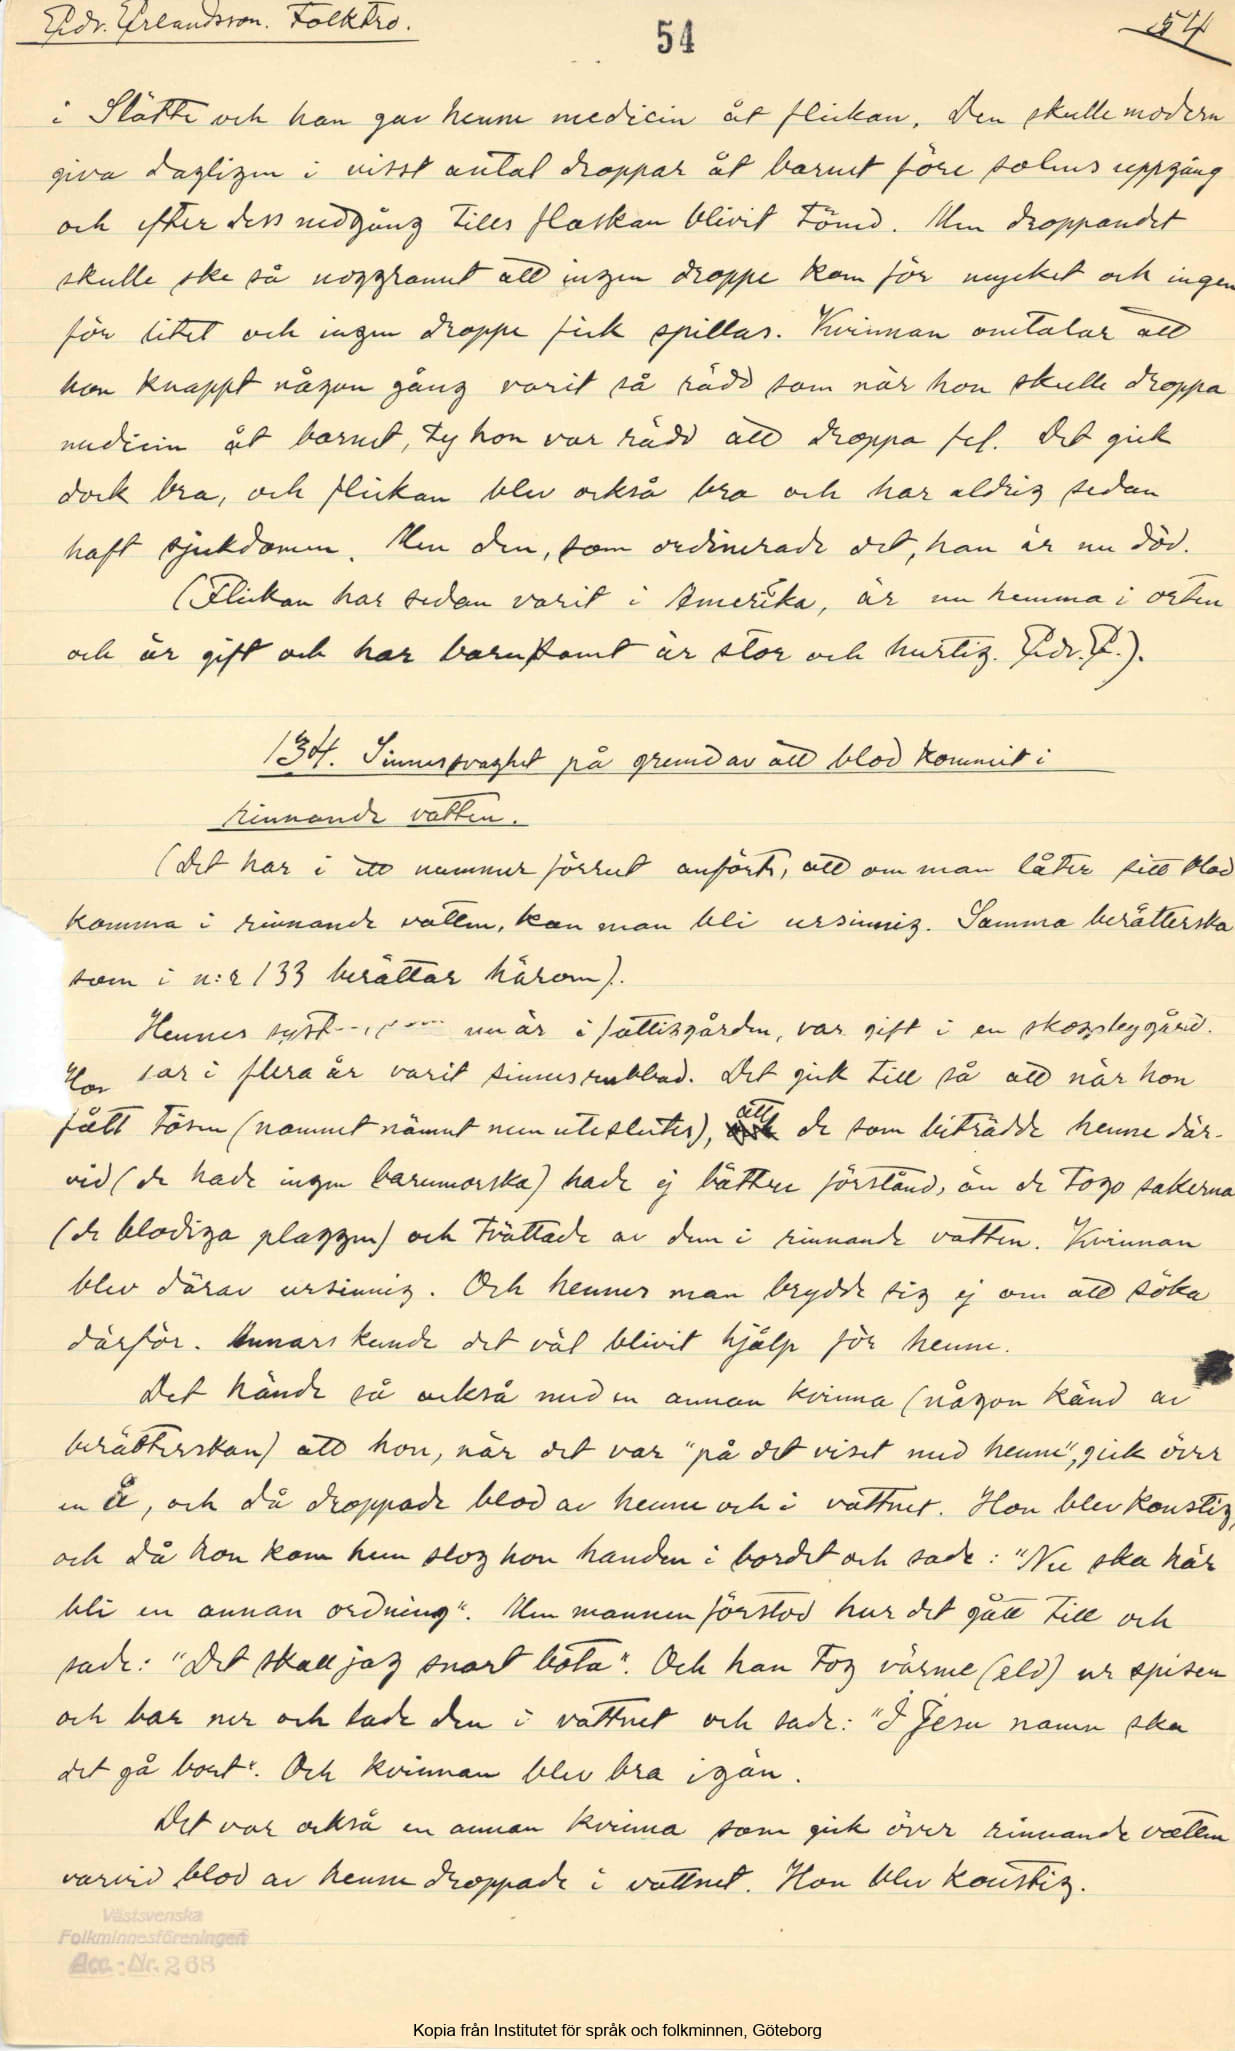 Edv. Erlandsson. Folktro.
54
54
i Slätte och han gav henne medicin åt flickan. Den skulle modern
giva dagligen i visst antal droppar åt barnet före solens uppgång
och efter dess nedgång tilles flaskan blivit tömd. Men droppandet
skulle ske så noggrannt att ingen droppe kom för mycket och ingen
för litet och ingen droppe fick spillas. Kvinnan omtalar att
hon knappt någon gång varit så rädd som när hon skulle droppa
medicin åt barnet, ty hon var rädd att droppa fel. Det gick
dock bra, och flickan blev också bra och har aldrig sedan
haft sjukdomen. Men den, som ordinerade det, han är nu död.
(Flickan har sedan varit i Amerika, är nu hemma i orten
och är gift och har barn samt är stor och hurtig. Edv. E.).
134. Sinnessvaghet på grund av att blod kommit i
rinnande vatten.
(Det har i ett nummer förrut anförts, att om man låter sitt blod
komma i rinnande vatten, kan man bli ursinnig. Samma berätterska
som i n:r 133 berättar härom).
Hennes syst som nu är i fattiggården, var gift i en skogsbygård.
Hon har i flera år varit sinnesrubbad. Det gick till så att när hon
fått tösen (namnet nämnt men uteslutes), att de som biträdde henne där-
vid (de hade ingen barnmorska) hade ej bättre förstånd, än de togo sakerna
(de blodiga plaggen) och tvättade av dem i rinnande vatten. Kvinnan
blev därav ursinnig. Och hennes man brydde sig ej om att söka
därför. Annars kunde det väl blivit hjälp för henne.
Det hände så också med en annan kvinna (någon känd av
berätterskan) att hon, när det var "på det viset med henne", gick över
en å, och då droppade blod av henne och i vattnet. Hon blev konstig,
och då hon kom hem slog hon handen i bordet och sade: "Nu ska här
bli en annan ordning". Men mannen förstod hur det gått till och
sade: "Det skall jag snart bota". Och han tog värme (eld) ur spisen
och bar ner och lade den i vattnet och sade: "I Jesu namn ska
det gå bort". Och kvinnan blev bra igän.
Det var också en annan kvinna som gick över rinnande vatten
varvid blod av henne droppade i vattnet. Hon blev konstig.
Västsvenska
Folkminnesföreningen
Acc.-Nr. 268
Kopia från Institutet för språk och folkminnen, Göteborg